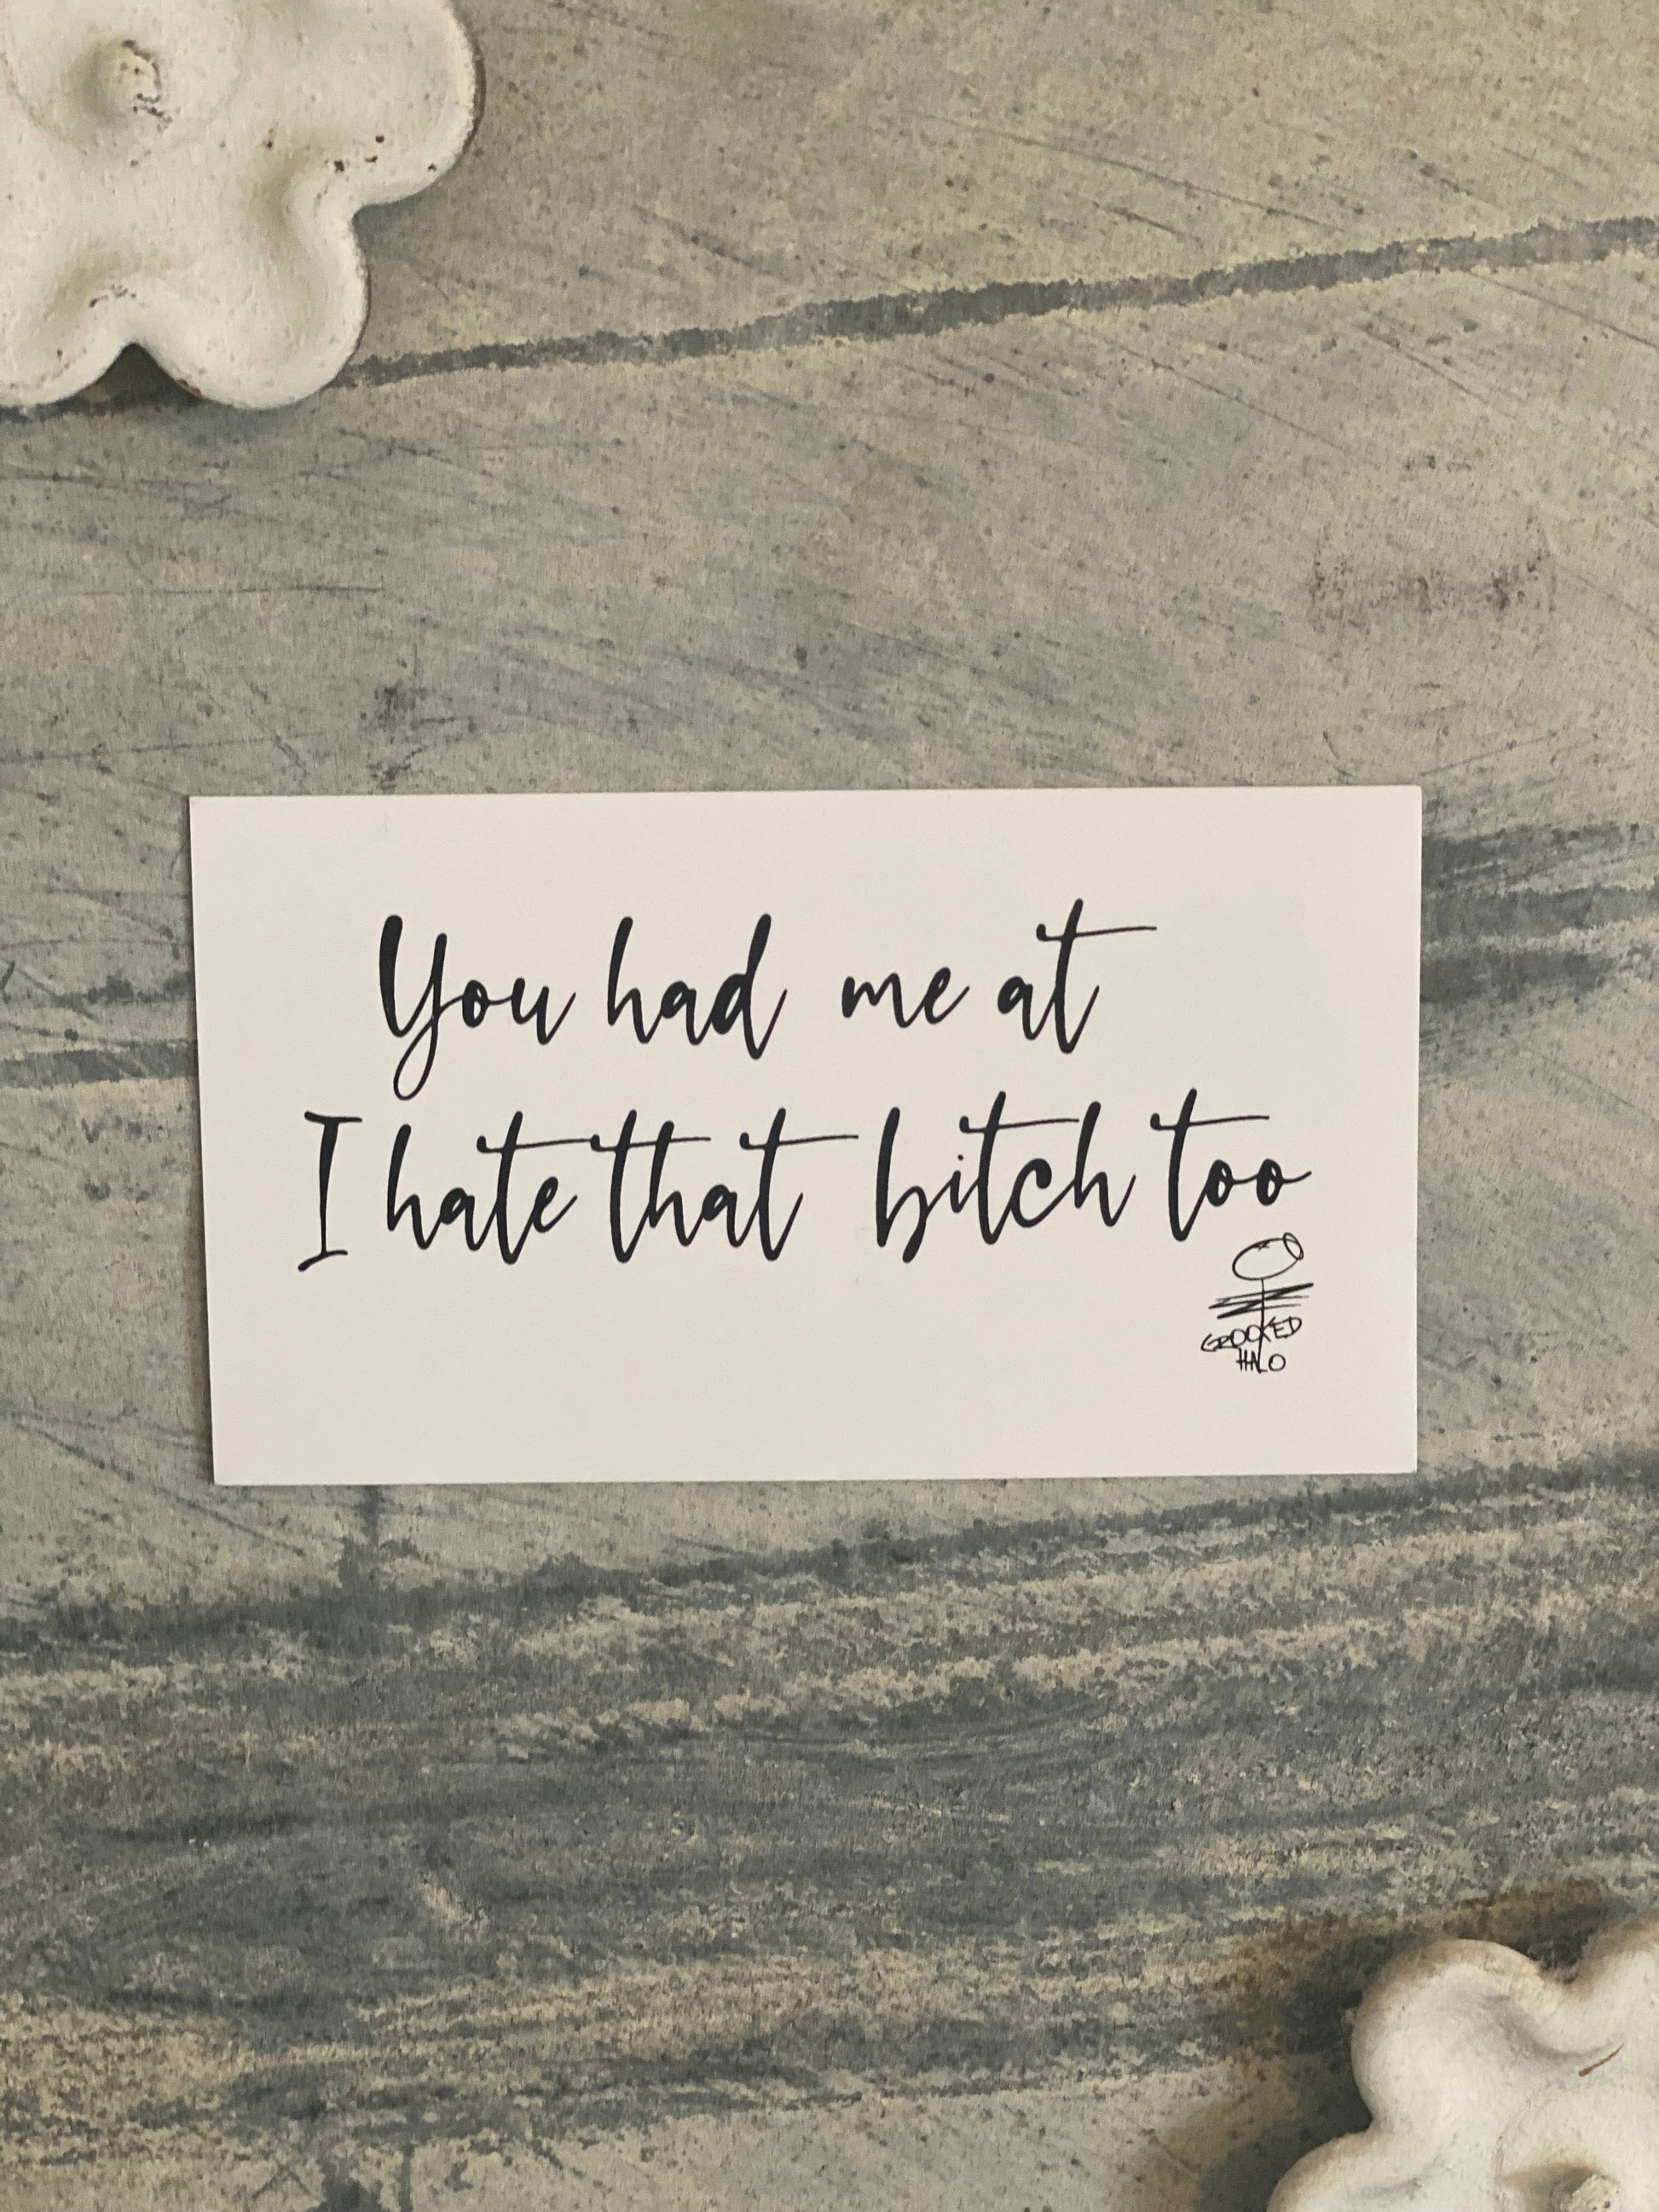 You had me at
I hate that bitch too
CROOKED
HALO